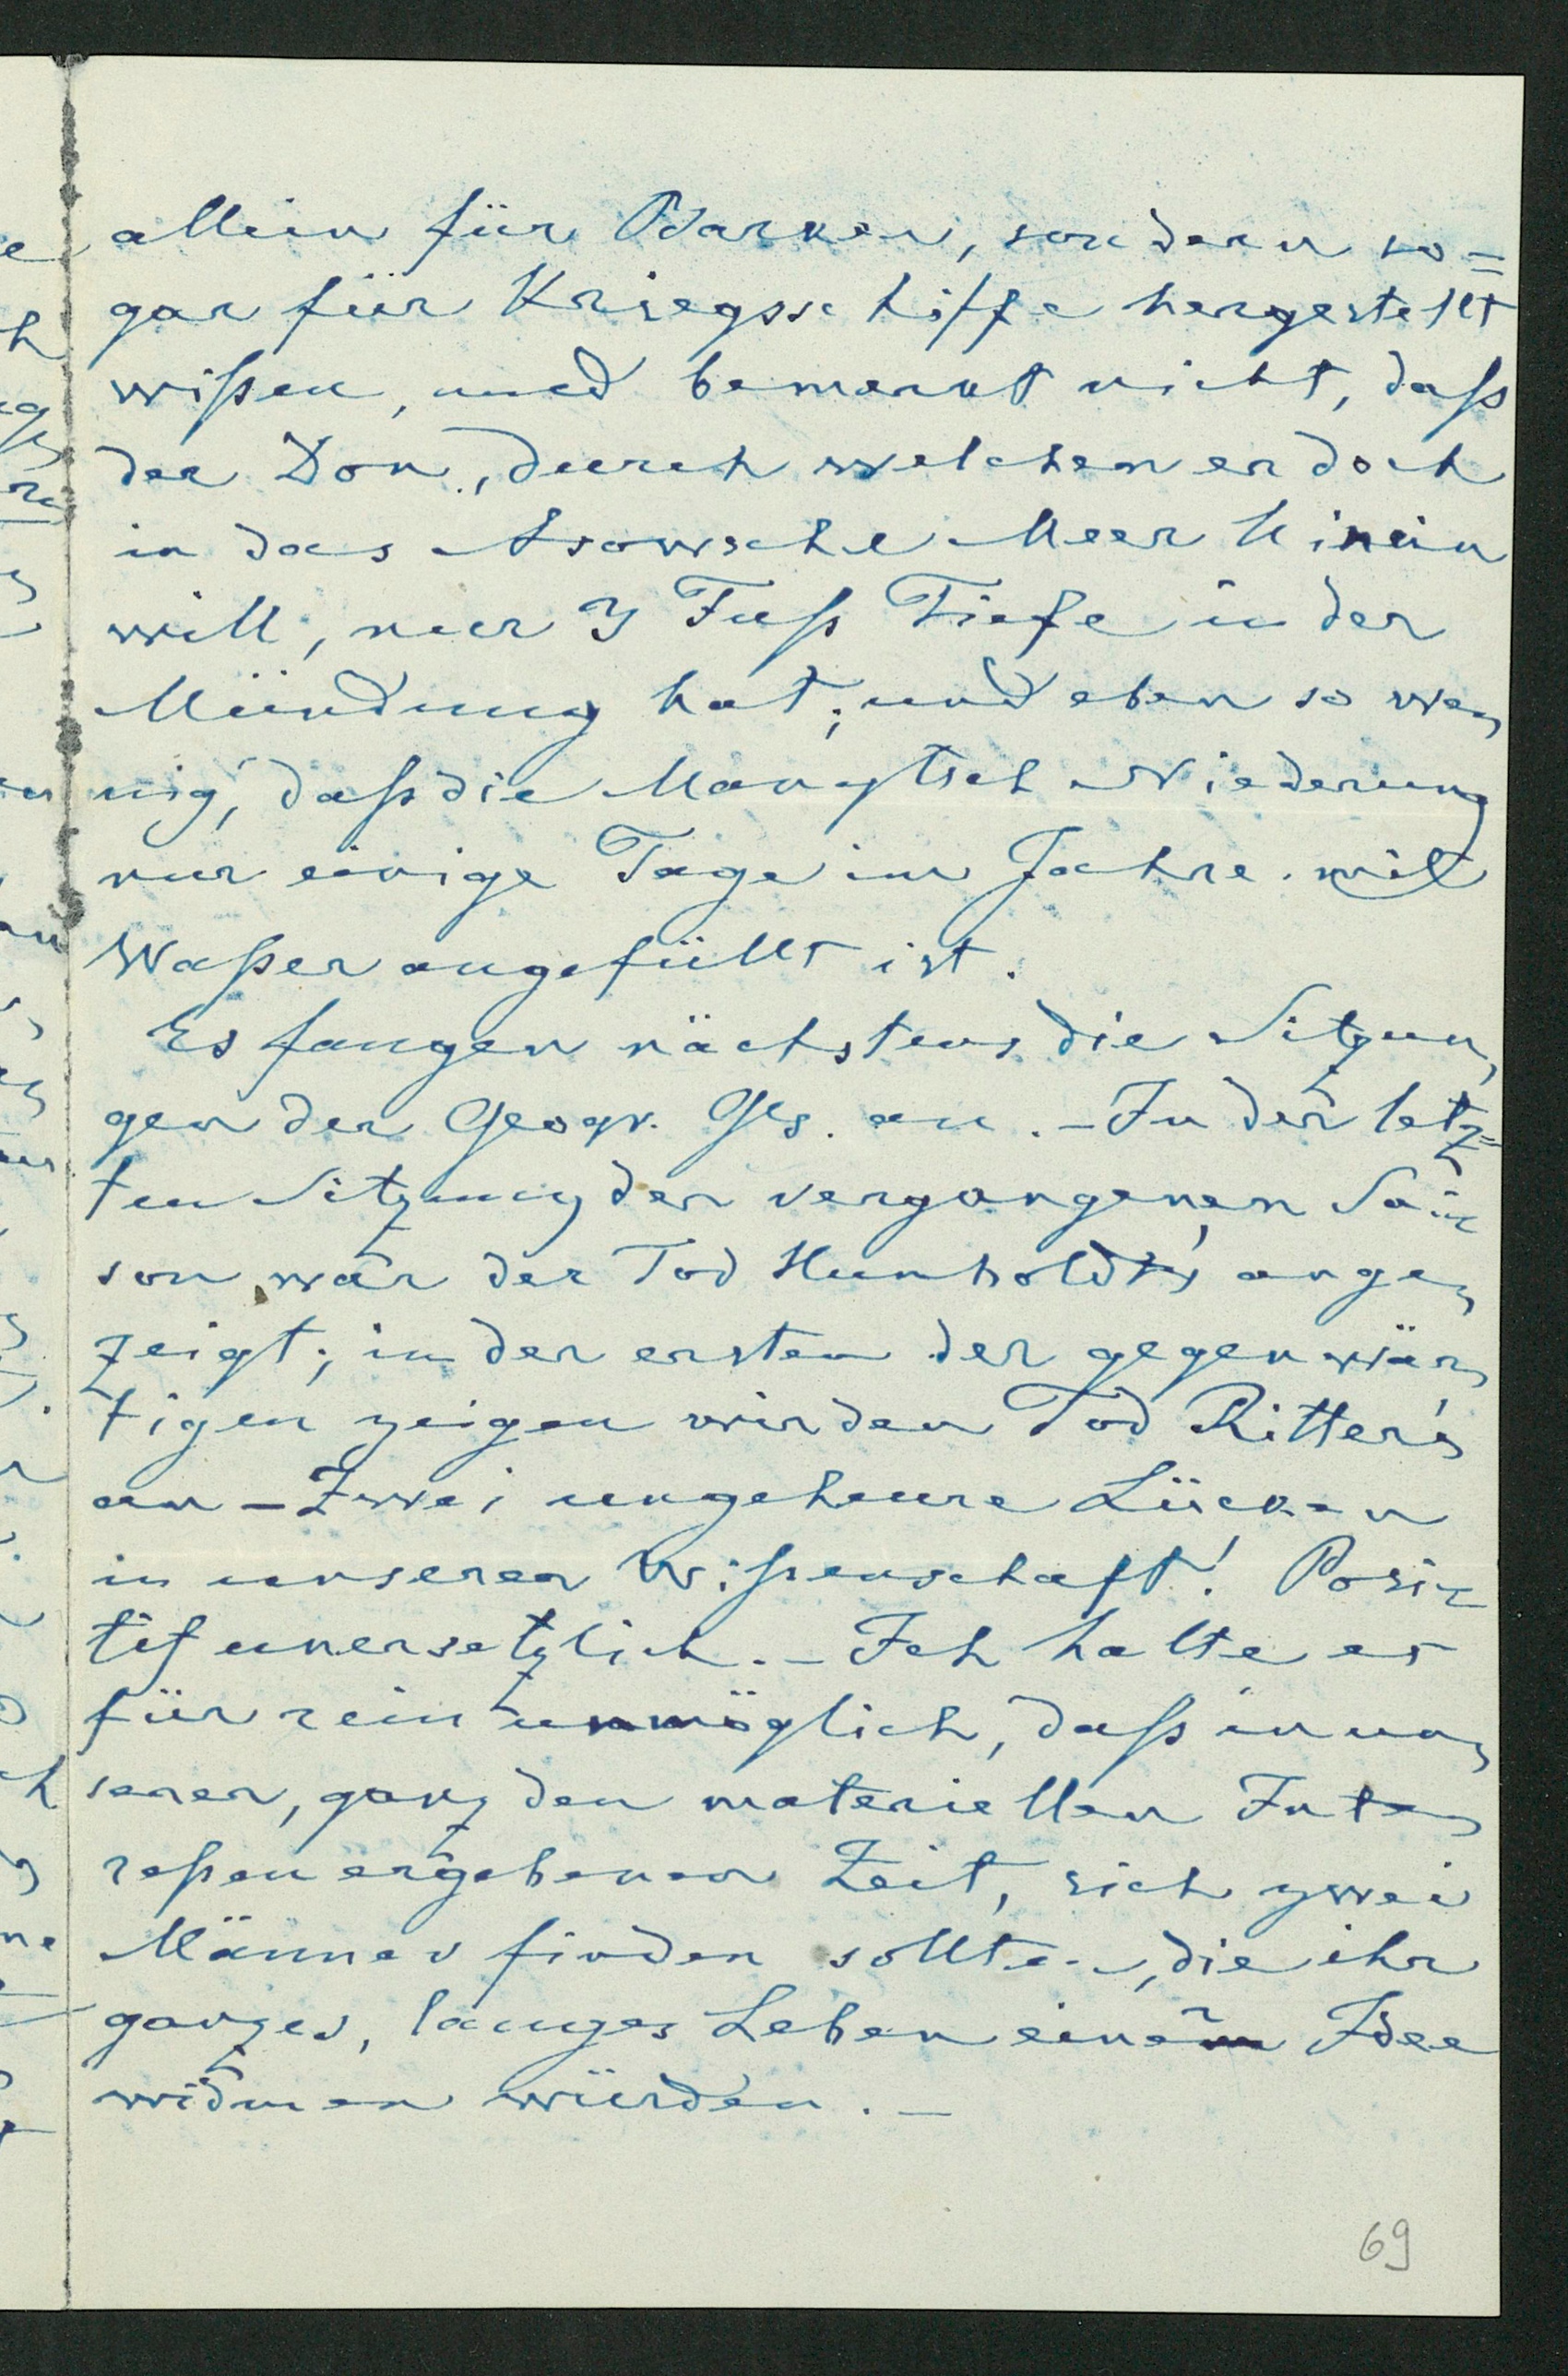 allein für Barken, sondern so=
gar für Kriegsschiffe hergestellt
wißen, und bemerkt nicht, daß
der Don, durch welchen er doch
in das Asowsche Meer hinein
will, nur 3 Fuß Tiefe in der
Mündung hat; und eben so we-
nig, daß die Manytsch Niederung
nur einige Tage im Jahre mit
Waßer angefüllt ist.
Es fangen nächstens die Sitzun-
gen der Geogr. Ges. an. – In der letz=
ten Sitzung der vergangenen Sai-
son war der Tod Humboldt's ange-
zeigt; in der ersten der gegenwär-
tigen zeigen wir den Tod Ritter's
an – Zwei ungeheure Lücken
in unserer Wißenschaft! Posi-
tif unersetzlich. – Ich halte es
für rein unmöglich, daß in un-
serer, ganz den materiellen Inte-
reßen ergebenen Zeit, sich zwei
Männer finden sollten, die ihr
ganzes, langes Leben einer Idee
widmen würden. –
69